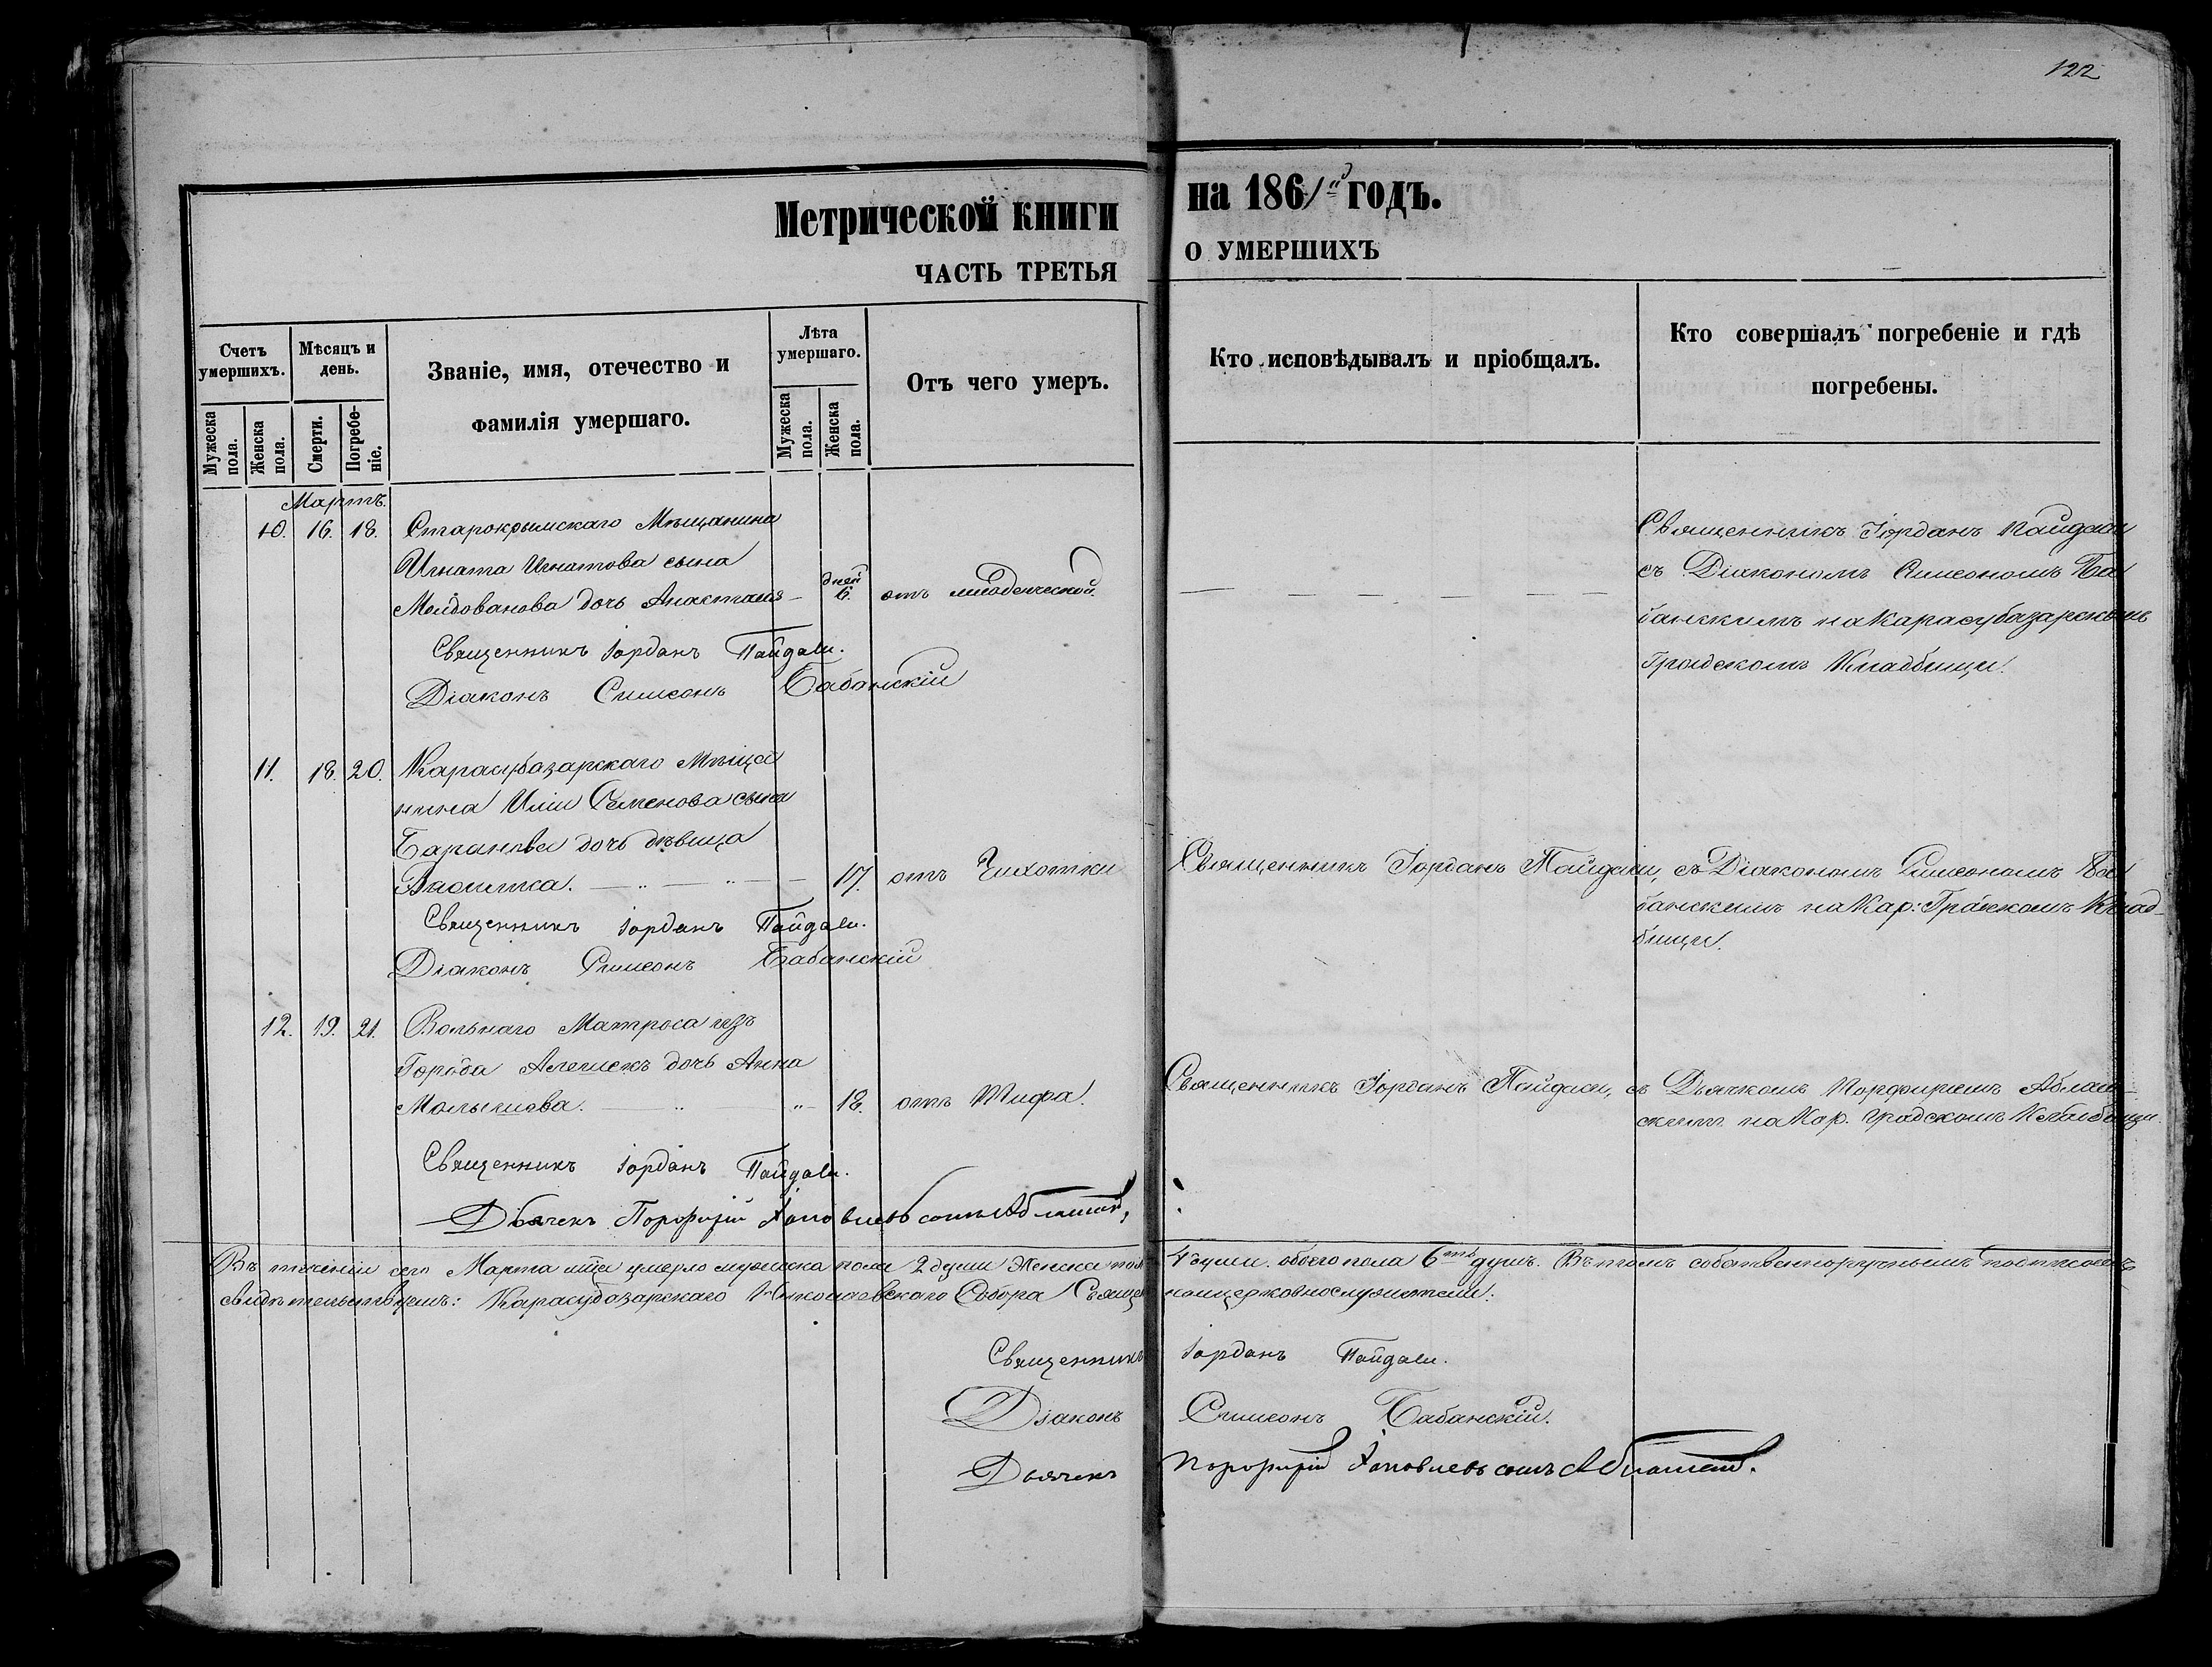 122
Метрической книги на 1861й годъ.
ЧАСТЬ ТРЕТЬЯ О УМЕРШИХЪ
Счетъ умершихъ.
Мѣсяцъ и день.
Званіе, имя, отечество и фамилія умершаго.
Лѣта умершаго.
Отъ чего умеръ.
Кто исповѣдывалъ и пріобщалъ.
Кто совершалъ погребеніе и гдѣ погребены.
Мужеска пола.
Женска пола.
Смерти.
Погребеніе.
Мужеска пола.
Женска пола.
Мартъ.
10. 16. 18. Старокрымскаго Мѣщанина
Игната Игнатова сына
Молдованова дочь Анастасія – дней 6. отъ младенческой.
Священникъ Іорданъ Пайдаси
съ Діакономъ Симеономъ Ба
банскимъ на Карасубазарскомъ
Градскомъ Кладбищи.
Священникъ Іорданъ Пайдаси.
Діаконъ Симеонъ Бабанскій
11. 18. 20. Карасубазарскаго Мѣща
нина Иліи Семенова сына
Баранова дочь дѣвица
17. отъ Чихотки
Священникъ Іорданъ Пайдаси, съ Діакономъ Симеономъ Ба
банскимъ на Кар: Град: скомъ Клад-
бищи.
Священникъ Іорданъ Пайдаси.
Діаконъ Симеонъ Бабанскій
12. 19. 21. Вольнаго Матроса изъ
Города Алешекъ дочь Анна
18. отъ Тифа.
Священникъ Іорданъ Пайдаси, съ Дьячкомъ Порфиріемъ
на Кар. Градскомъ Кладбищи.
Священникъ Іорданъ Пайдаси.
Дьячекъ Порфирій Яковлевъ сынъ
Въ теченіи сего Марта мца умерло мужеска пола 2 души Женска пола 4 души. обоего пола 6ть душъ. Въ томъ собственноручнымъ подписомъ
свидѣтельствуемъ: Карасубазарскаго Николаевскаго Собора Священноцерковнослужители:
Священникъ Іорданъ Пайдаси.
Діаконъ Симеонъ Бабанскій.
Дьячекъ Порфирій Яковлевъ сынъ